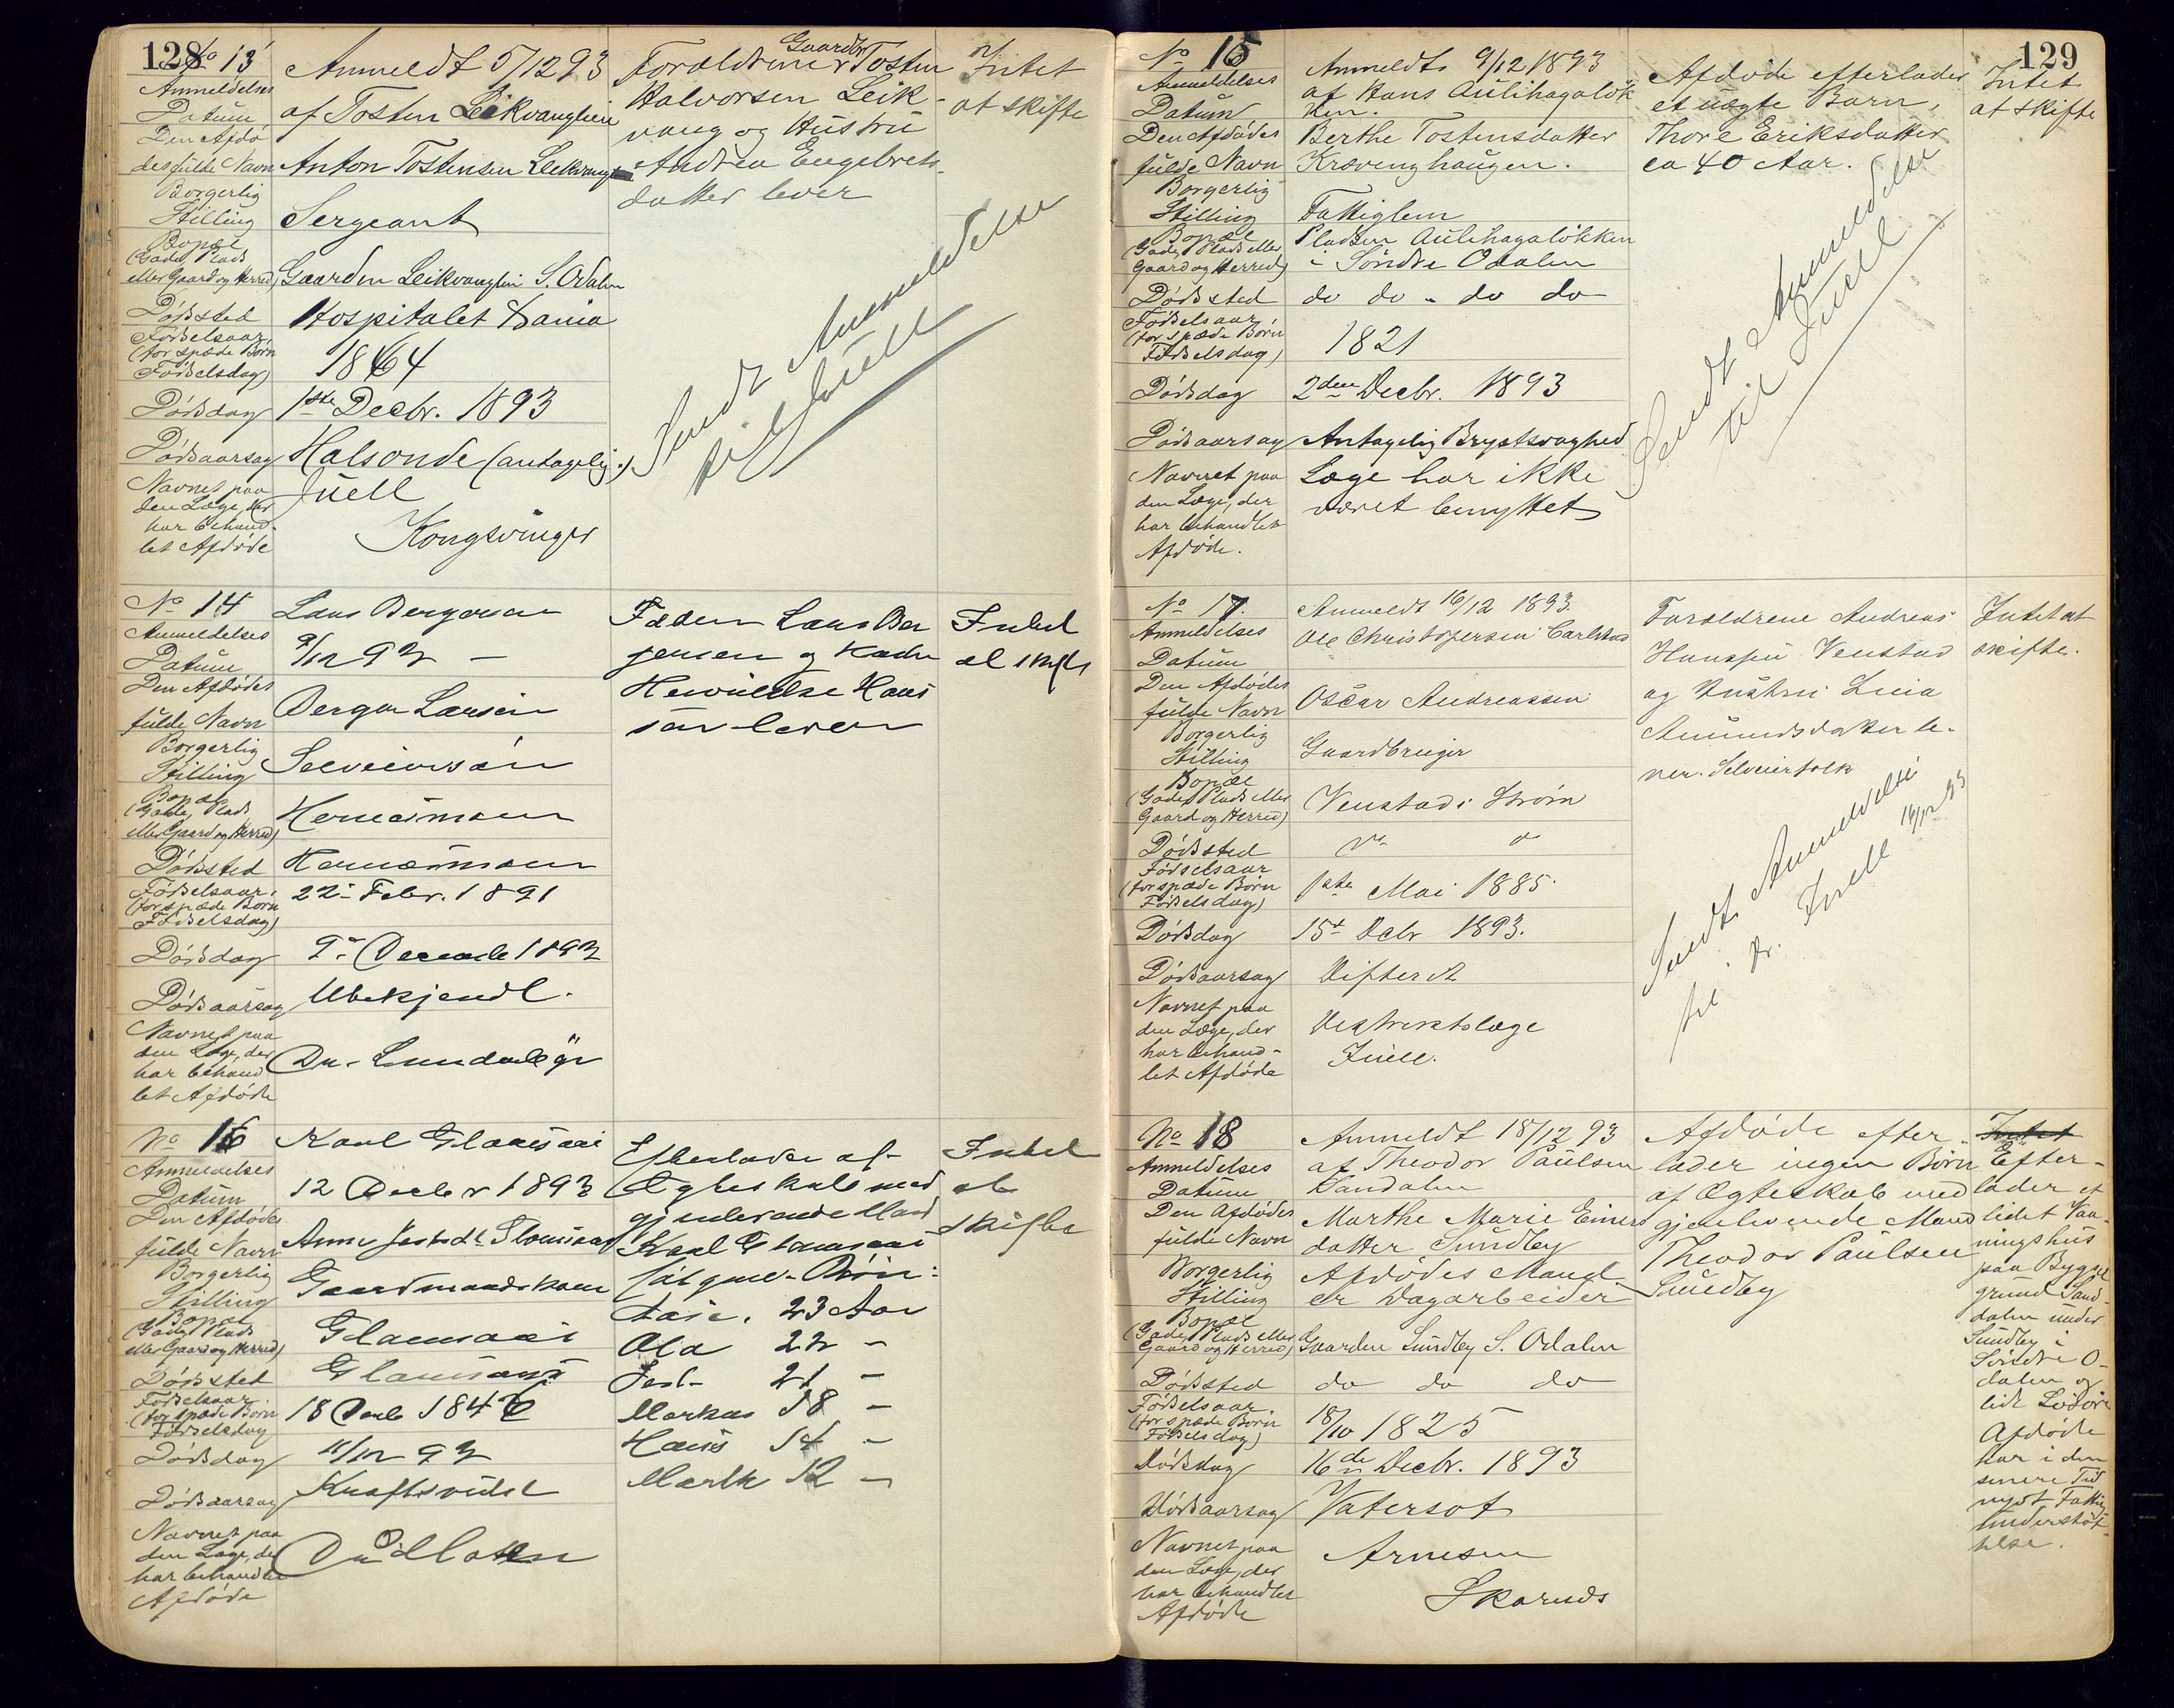 128
No 13
Anmeldelses
Datum
Den Afdø
des fulde Navn
Borgerlig
Stilling
Bopæl
(Gade, Plads
eller Gaard og Herred)
Dødssted
Fødselsaar
(for spæde Børn
Fødselsdag)
Dødsdag
Dødsaarsag
Navnet paa
den Læge, der
har behand-
let Afdøde
Anmeldt 5/12 93
af Tosten Leikvanglien
Anton Tostensen Leikvang
Sergeant
Gaarden Leikvanglien S. Odalen
Hospitalet Hamar
1864
1ste Decbr. 1893
Halsonde (antagelig)
Juell
Kongsvinger
Gaardbr
Forældrene Tosten
Halvorsen Leik-
vang og Hustru
Andrea Engebrets-
datter lever
Sendt Anmeldelse
til Juell
Intet
at skifte
No 14
Anmeldelses
Datum
Den Afdødes
fulde Navn
Borgerlig
Stilling
Bopæl
(Gade, Plads
eller Gaard og Herred)
Dødssted
Fødselsaar
(for spæde Børn
Fødselsdag)
Dødsdag
Dødsaarsag
Navnet paa
den Læge, der
har behand
let Afdøde
Lars Bergersen
9/12 93 -
Berger Larsen
Selveiersøn
22 - Febr. 1891
9 - December 1893
Ubekjendt.
Dr.
Faderen Lars Ber
gersen og Moder
lever
Intet
at skifte
No 16
Anmeldelses
Datum
Den Afdødes
fulde Navn
Borgerlig
Stilling
Bopæl
(Gade, Plads
eller Gaard og Herred)
Dødssted
Fødselsaar
(for spæde Børn
Fødselsdag
Dødsdag
Dødsaarsag
Navnet paa
den Læge, der
har behandlet
Afdøde
Karl
12 Decbr 1893
Anne
Gaardmandskone
18 Decb 184
11/12 93
Efterlader af
Ægteskab med
gjenlevende Mand
Karl
følgene Børn:
23 Aar
Ola 22 -
21 -
Markus 18 -
Hans 14 -
Marth 12 -
Intet
at
skifte
129
No 15
Anmeldelses
Datum
Den Afdødes
fulde Navn
Borgerlig
Stilling
Bopæl
(Gade, Plads eller
Gaard og Herred)
Dødssted
Fødselsaar
(for spæde Børn
Fødselsdag)
Dødsdag
Dødsaarsag
Navnet paa
den Læge, der
har behandlet
Afdøde.
Anmeldt 9/12 1893
af Hans Aulihagaløk
ken.
Berthe Tostensdatter
Krævenghaugen.
Fattiglem
Pladsen Aulihagaløkken
i Søndre Odalen
do do - do do
1821
2den Decbr. 1893
Antagelig Brystsvaghed
Læge har ikke
været benyttet
Afdøde efterlader
et uægte Barn,
Thore Eriksdatter
ca 40 Aar.
Sendt Anmeldelse
til Juell
Intet
at skifte
No 17.
Anmeldelses
Datum
Den Afdødes
fulde Navn
Borgerlig
Stilling
Bopæl
(Gade, Plads eller
Gaard og Herred)
Dødssted
Fødselsaar
(for spæde Børn
Fødselsdag)
Dødsdag
Dødsaarsag
Navnet paa
den Læge, der
har behand-
let Afdøde
Anmeldt 16/12 1893.
Ole Christophersen Carlstad
Oscar Andreassen
Gaardbruger
Venstad i Strøm
1ste Mai 1885.
15de Decbr 1893.
Difterit
Distriktslæge
Juell.
Forældrene Andreas
Hanssen Venstad
og Hustru Lina
Amundsdatter le-
ver. Selveierfolk
Sendt Anmeldelse
til Dr. Juell 16/12 93
Intet at
skifte.
No 18
Anmeldelses
Datum
Den Afdødes
fulde Navn
Borgerlig
Stilling
Bopæl
(Gade, Plads eller
Gaard og Herred)
Dødssted
Fødselsaar
(for spæde Børn
Fødselsdag)
Dødsdag
Dødsaarsag
Navnet paa
den Læge, der
har behandlet
Afdøde
Anmeldt 18/12 93
af Theodor Paulsen
Sandalen
Marthe Marie Einers
datter Sundby
Afdødes Mand
er Dagarbeider
Gaarden Sundby S. Odalen
do do do
18/10 1825
16de Decbr. 1893
Vatersot
Arnesen
Skarnæs
Afdøde efter-
lader ingen Børn
af Ægteskab med
gjenlevende Mand
Theodor Paulsen
Sundby
Intet
Efter-
lader et
lidet Vaa-
ningshus
paa Bygsel
grund Sand-
dalen under
Sundby i
Søndre O-
dalen og
lidt Løsøre
Afdøde
har i den
senere Tid
nydt Fattig
understøt-
telse.